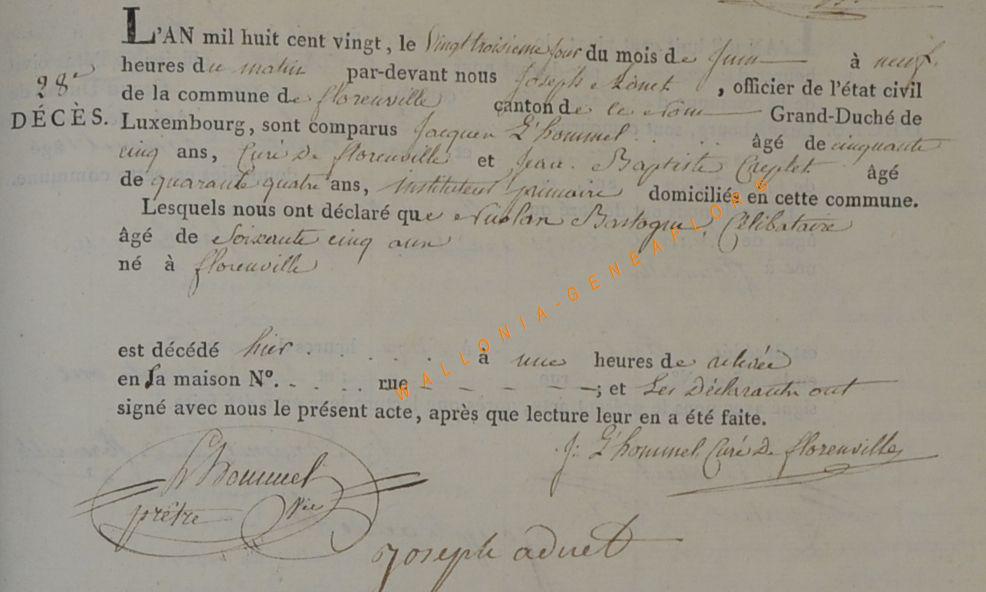 L'AN mil huit cent vingt, le Vingt troisieme jour du mois de Juin à neuf
28e heures du matin par-devant nous Joseph Adnet, officier de l'état civil
DÉCÈS. de la commune de florenville canton de ce nom Grand-Duché de
Luxembourg, sont comparus Jacques L'hommel . . . . . âgé de cinquante
cinq ans, Curé De florenville et Jean Baptiste âgé
de quarante quatre ans, instituteur primaire domiciliés en cette commune.
Lesquels nous ont déclaré que Nicolas Bastogne, Célibataire
âgé de Soixante cinq ans
né à florenville
est décédé hier . . . . . . à une heures de relevée
en sa maison N°. - . . . rue - - - - - -; et Les Déclarants ont
signé avec nous le présent acte, après que lecture leur en a été faite.
L'hommel
prêtre Vic
J. L'hommel Curé De florenville
Joseph adnet
WALLONIA-GENEAPLORE